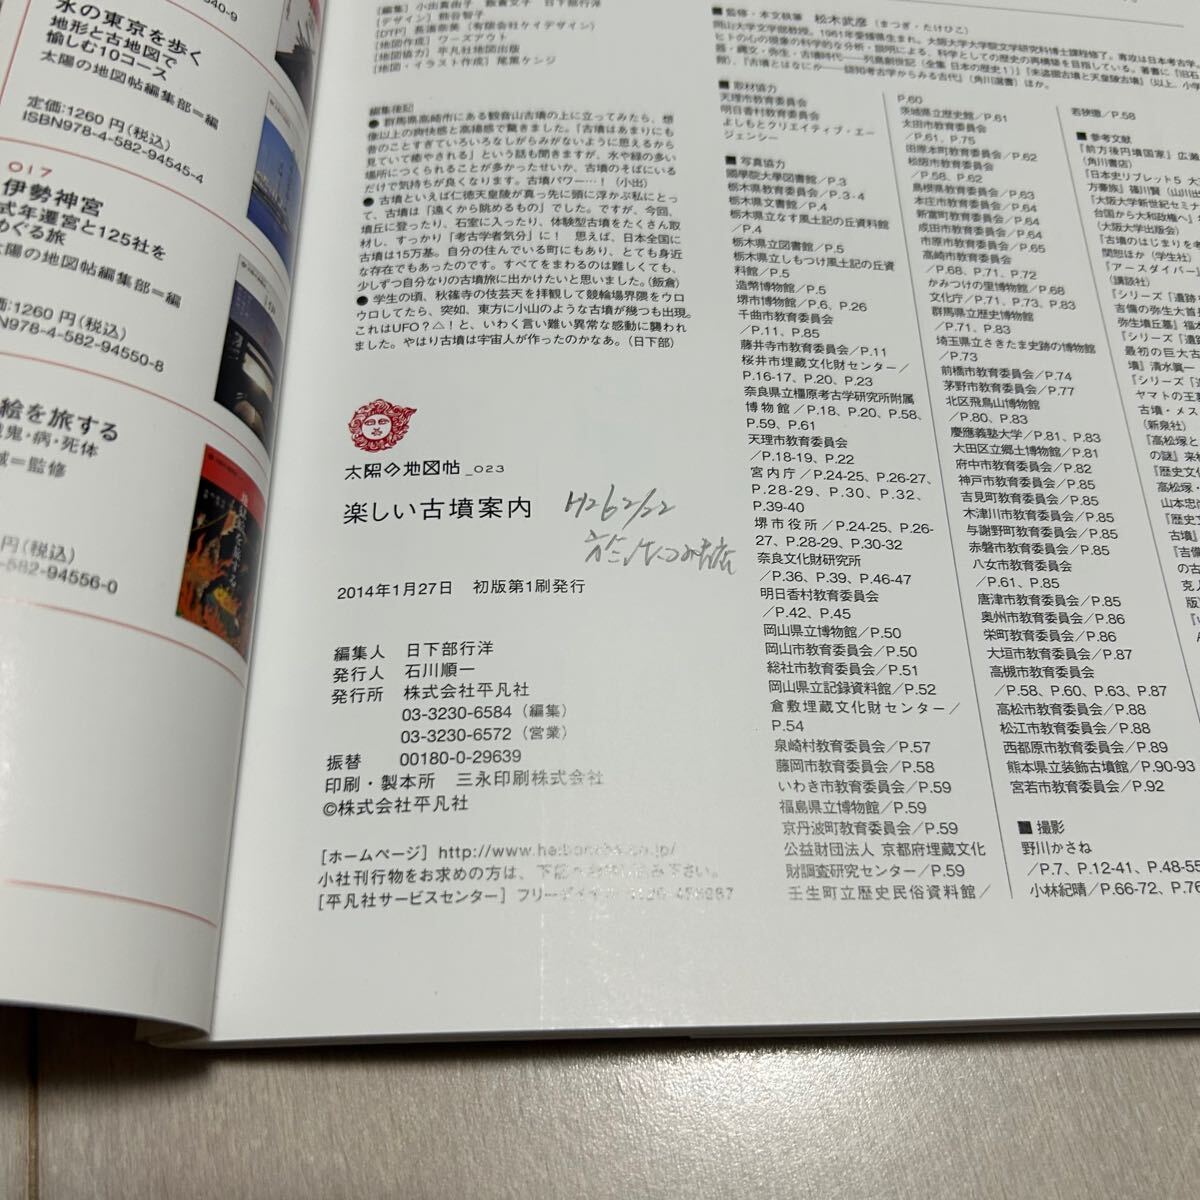 水の東京を歩く
地形と古地図で
愉しむ10コース
太陽の地図帖編集部＝編
定価:1260円(税込)
ISBN978-4-582-94545-4
017
伊勢神宮
式年遷宮と125社を
めぐる旅
太陽の地図帖編集部＝編
定価:1260円(税込)
978-4-582-94550-8
絵を旅する
鬼・病・死体
＝監修
円(税込)
-582-94556-0
[デザイン] 熊谷智子
[DTP] 長濱奈美（有限会社ケイデザイン）
[地図作成] ワーズアウト
[地図協力] 平凡社地図出版
[地図・イラスト作成] 尾黒ケンジ
編集後記
● 群馬県高崎市にある観音山古墳の上に立ってみたら、想
像以上の爽快感と高揚感で驚きました。「古墳はあまりにも
昔のことすぎていろいろなしがらみがないように思えるから
見ていて癒やされる」という話も聞きますが、水や緑の多い
場所につくられることが多かったせいか、古墳のそばにいる
だけで気持ちが良くなります。古墳パワー…！（小出）
● 古墳といえば仁徳天皇陵が真っ先に頭に浮かぶ私にとっ
て、古墳は「遠くから眺めるもの」でした。ですが、今回、
墳丘に登ったり、石室に入ったり、体験型古墳をたくさん取
材し、すっかり「考古学者気分」に！ 思えば、日本全国に
古墳は15万基。自分の住んでいる町にもあり、とても身近
な存在でもあったのです。すべてをまわるのは難しくても、
少しずつ自分なりの古墳旅に出かけたいと思いました。（飯倉）
● 学生の頃、秋篠寺の伎芸天を拝観して競輪場界隈をウロ
ウロしてたら、突如、東方に小山のような古墳が幾つも出現。
これはUFO？△！と、いわく言い難い異常な感動に襲われ
ました。やはり古墳は宇宙人が作ったのかなあ。（日下部）
太陽の地図帖_023
楽しい古墳案内
H26 2/22
2014年1月27日　初版第1刷発行
編集人　日下部行洋
発行人　石川順一
発行所　株式会社平凡社
03-3230-6584（編集）
03-3230-6572（営業）
振替　00180-0-29639
印刷・製本所　三永印刷株式会社
©株式会社平凡社
[ホームページ] http://www.heibonsha.co.jp/
小社刊行物をお求めの方は、下記
[平凡社サービスセンター] フリーダイヤル
■監修・本文執筆　松木武彦（まつぎ・たけひこ）
岡山大学文学部教授。1961年愛媛県生まれ。大阪大学大学院文学研究科博士課程修了。専攻は日本考古学。
ヒトの心の現象の科学的な分析・説明による、科学としての歴史の再構築を目指している。著書に『旧石
器・縄文・弥生・古墳時代――列島創世記（全集 日本の歴史1）』『未盗掘古墳と天皇陵古墳』（以上、小学
館）、『古墳とはなにか――認知考古学からみる古代』（角川選書）ほか。
■取材協力
天理市教育委員会
明日香村教育委員会
よしもとクリエイティブ・エー
ジェンシー
■写真協力
國學院大學図書館／P.3
栃木県教育委員会／P.3・4
栃木県文書館／P.4
栃木県立なす風土記の丘資料館
／P.4
栃木県立図書館／P.5
栃木県立しもつけ風土記の丘資
料館／P.5
造幣博物館／P.5
堺市博物館／P.6、P.26
千曲市教育委員会
／P.11、P.85
藤井寺市教育委員会／P.11
桜井市埋蔵文化財センター／
P.16-17、P.20、P.23
奈良県立橿原考古学研究所附属
博物館／P.18、P.20、P.58、
P.59、P.61
天理市教育委員会
／P.18-19、P.22
宮内庁／P.24-25、P.26-27、
P.28-29、P.30、P.32、
P.39-40
堺市役所／P.24-25、P.26-
27、P.28-29、P.30-32
奈良文化財研究所
／P.36、P.39、P.46-47
明日香村教育委員会
／P.42、P.45
岡山県立博物館／P.50
岡山市教育委員会／P.50
総社市教育委員会／P.51
岡山県立記録資料館／P.52
倉敷埋蔵文化財センター／
P.54
泉崎村教育委員会／P.57
藤岡市教育委員会／P.58
いわき市教育委員会／P.59
福島県立博物館／P.59
京丹波町教育委員会／P.59
公益財団法人 京都府埋蔵文化
財調査研究センター／P.59
壬生町立歴史民俗資料館／
P.60
茨城県立歴史館／P.61
太田市教育委員会
／P.61、P.75
田原本町教育委員会／P.62
松阪市教育委員会
／P.58、P.62
島根県教育委員会／P.63
本庄市教育委員会／P.64
新富町教育委員会／P.64
成田市教育委員会／P.64
市原市教育委員会／P.65
高崎市教育委員会
／P.68、P.71、P.72
かみつけの里博物館／P.68
文化庁／P.71、P.73、P.83
群馬県立歴史博物館
／P.71、P.83
埼玉県立さきたま史跡の博物館
／P.73
前橋市教育委員会／P.74
茅野市教育委員会／P.77
北区飛鳥山博物館
／P.80、P.83
慶應義塾大学／P.81、P.83
大田区立郷土博物館／P.81
府中市教育委員会／P.82
神戸市教育委員会／P.85
吉見町教育委員会／P.85
木津川市教育委員会／P.85
与謝野町教育委員会／P.85
赤磐市教育委員会／P.85
八女市教育委員会
／P.61、P.85
唐津市教育委員会／P.85
奥州市教育委員会／P.86
栄町教育委員会／P.86
大垣市教育委員会／P.87
高槻市教育委員会
／P.58、P.60、P.63、P.87
高松市教育委員会／P.88
松江市教育委員会／P.88
西都原市教育委員会／P.89
熊本県立装飾古墳館／P.90-93
宮若市教育委員会／P.92
■撮影
野川かさね
／P.7、P.12-41、P.48-55
小林紀晴／P.66-72、P.76
若狭徹／P.58
■参考文献
『前方後円墳国家』広瀬
（角川書店）
『日本史リブレット5 大
方豪族』篠川賢（山川出
『大阪大学新世紀セミナ
台国から大和政権へ』
（大阪大学出版会）
『古墳のはじまりを考
聞想ほか（学生社）
『アースダイバー
（講談社）
『シリーズ「遺跡
吉備の弥生大首長
弥生墳丘墓』福
『シリーズ「遺跡
最初の巨大古
墳』清水眞一
『シリーズ「遺
ヤマトの王墓
古墳・メス
（新泉社）
『高松塚と
の謎』来村
『歴史文
高松塚・
山本忠尚
『歴史文
古墳』